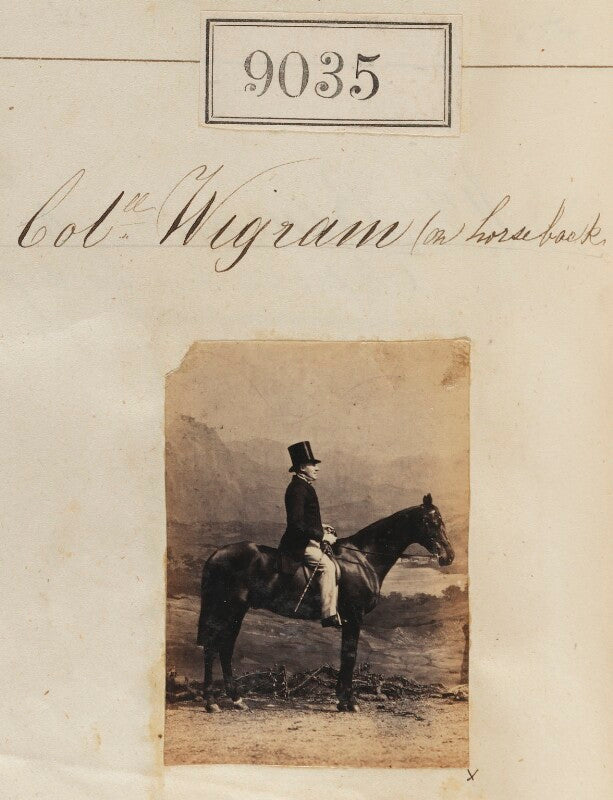 9035
Col.ll Wigram (on horseback
x